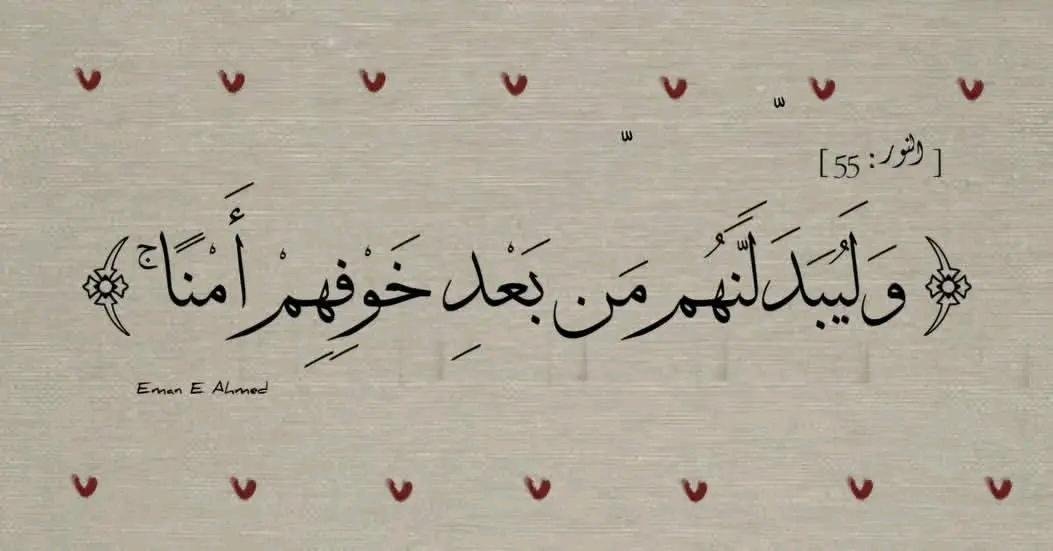 [النور: 55]
﴿وَلَيُبَدَلَنَّهُم مَن بَعْدِ خَوْفِهِمْ أَمْنًا ۚ﴾
Eman E Ahmed